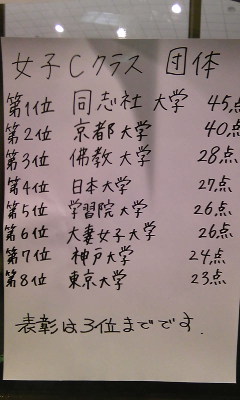 女子Cクラス 団体
第1位 同志社大学 45点
第2位 京都大学 40点
第3位 佛教大学 28点
第4位 日本大学 27点
第5位 学習院大学 26点
第6位 大妻女子大学 26点
第7位 神戸大学 24点
第8位 東京大学 23点
表彰は3位までです.